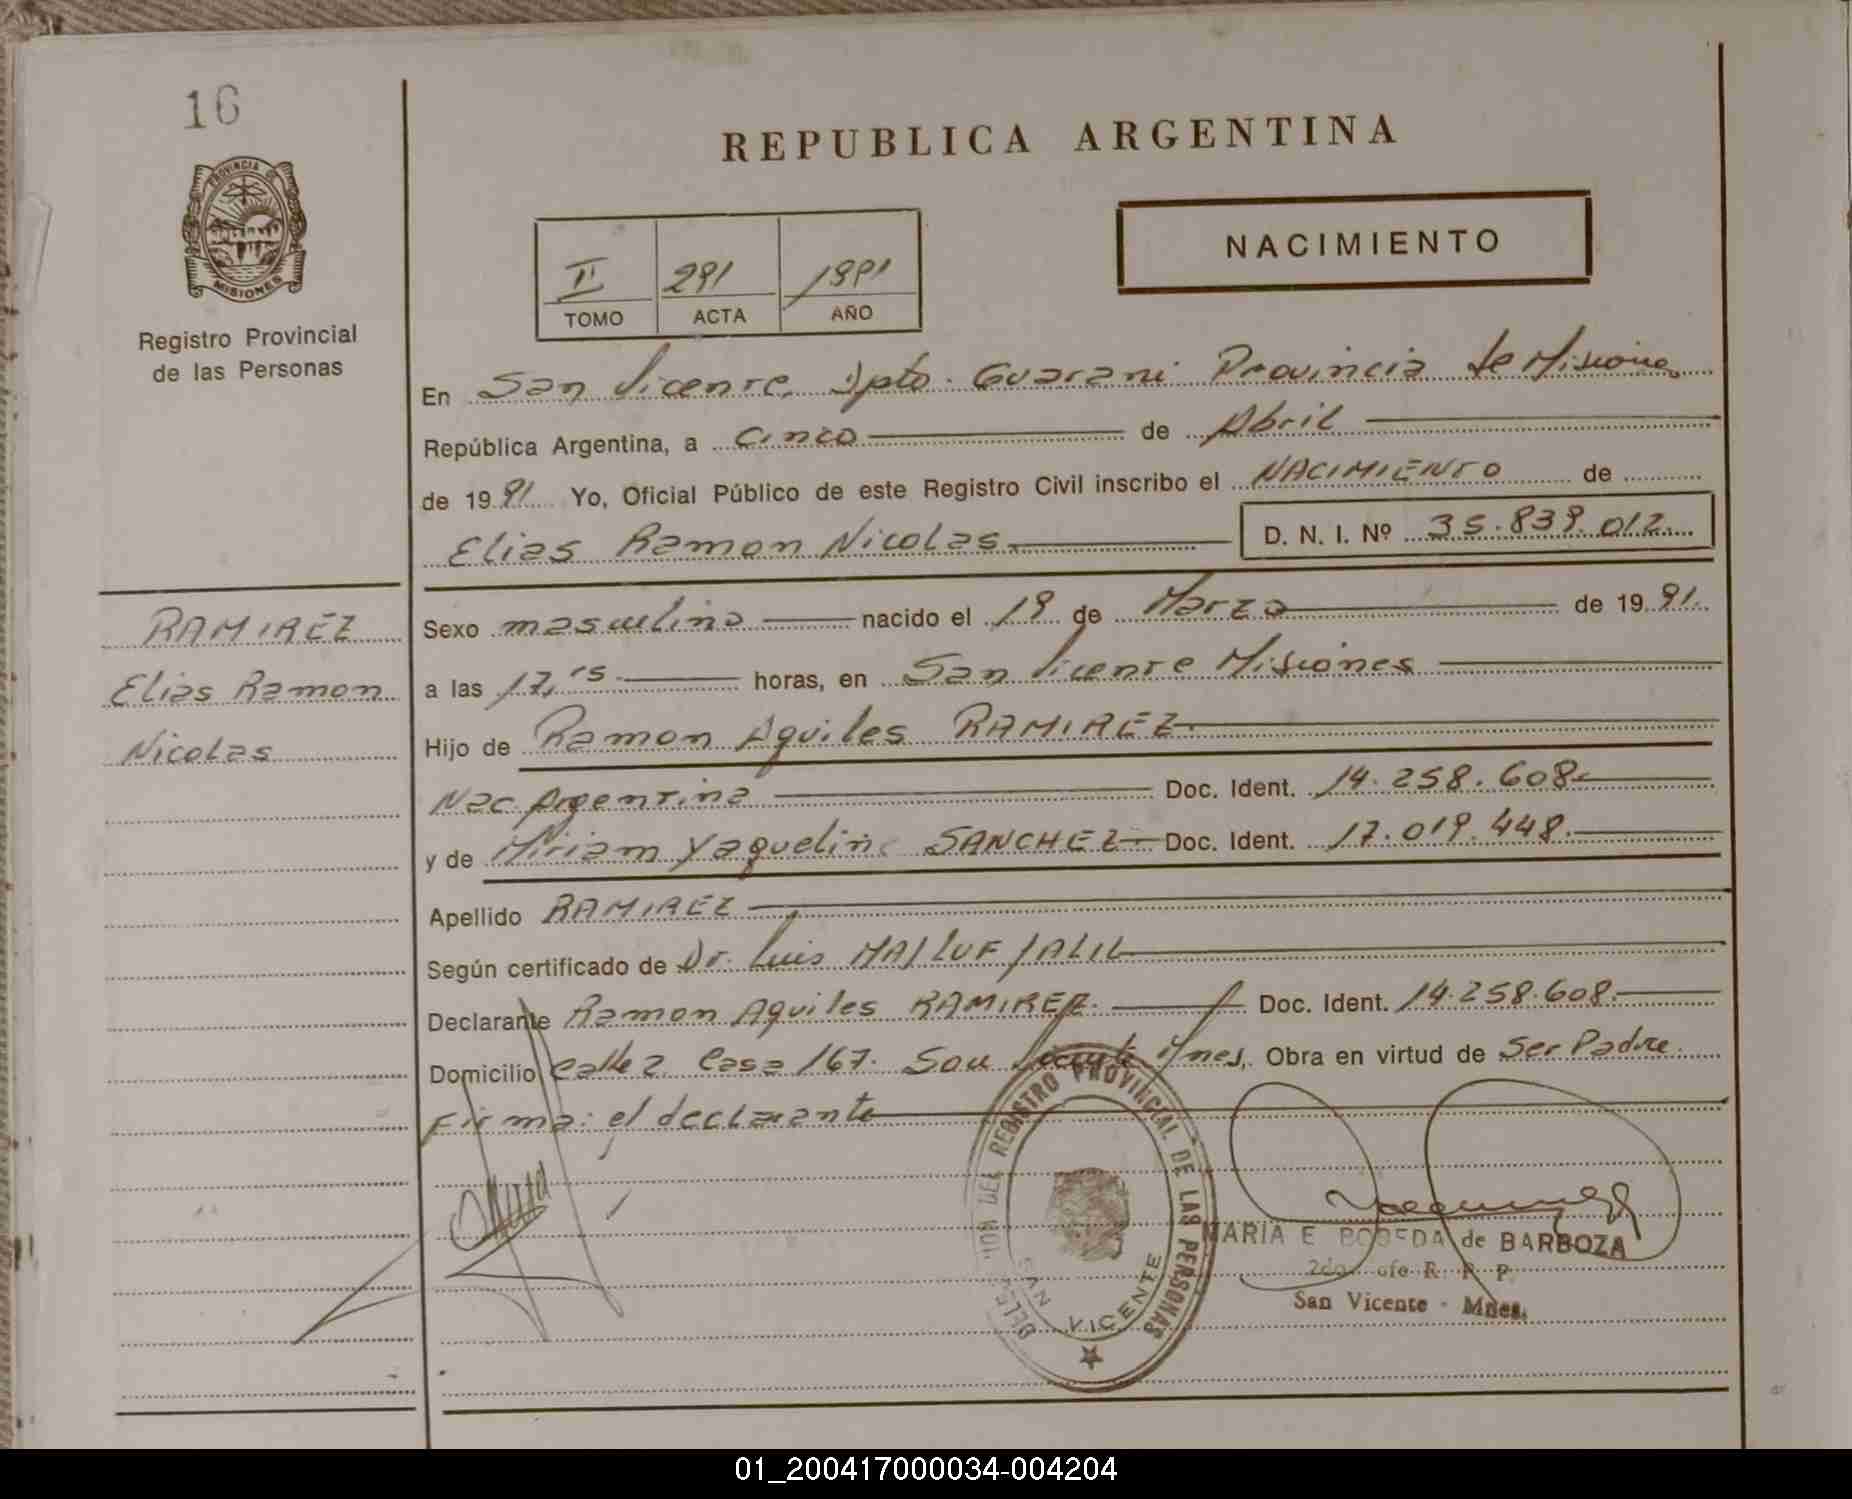 16
PROVINCIA DE
MISIONES
Registro Provincial
de las Personas
REPUBLICA ARGENTINA
NACIMIENTO
II 291 1991
TOMO ACTA AÑO
En San Vicente, Dpto. Guarani Provincia de Misiones
República Argentina, a Cinco de Abril
de 1991 Yo, Oficial Público de este Registro Civil inscribo el NACIMIENTO de
Elias Ramon Nicolas D. N. I. Nº 35.839.012
RAMIREZ
Elias Ramon
Nicolas
Sexo masculino nacido el 19 de Marzo de 1991.
a las 17,15 horas, en San Vicente Misiones
Hijo de Ramon Aquiles RAMIREZ
Nac. Argentina Doc. Ident. 14.258.608
y de Miriam Yaquelin SANCHEZ Doc. Ident. 17.019.448.
Apellido RAMIREZ
Según certificado de Dr. Luis JALIL
Declarante Ramon Aquiles RAMIREZ. Doc. Ident. 14.258.608.
Domicilio Calle 2 Casa 167. San Vicente Mnes, Obra en virtud de Ser Padre.
Firma: el declarante
REGISTRO PROVINCIAL DE LAS PERSONAS
SAN VICENTE
MARIA E. de BARBOZA
2do. R. P. P.
San Vicente - Mnes.
01_200417000034-004204